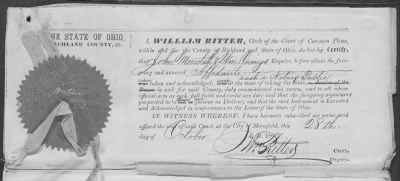 THE STATE OF OHIO,
RICHLAND COUNTY, SS.
I, WILLIAM RITTER, Clerk of the Court of Common Pleas,
within and for the County of Richland and State of Ohio, do hereby Certify,
that John Meredith & Wm
Esquire, before whom the fore-
going and annexed Affidavits
taken and acknowledged, at the time of taking the same,
in and for said County, duly commissioned and sworn, and to all whose
official acts as such, full faith and credit are due; and that the foregoing signatures
purported to be genuine as I believe; and that the said instrument is Executed
and Acknowledged in conformance to the Laws of the State of Ohio.
IN WITNESS WHEREOF, I have hereunto subscribed my name and
affixed the seal of said Court, at the City of Mansfield, this 28th
day of October
Wm Ritter Clerk.
Deputy.